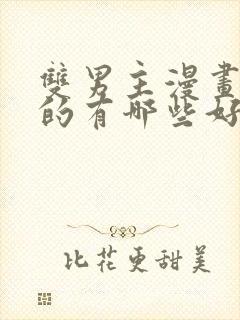 雙男主漫畫
的有哪些好
比花更甜美